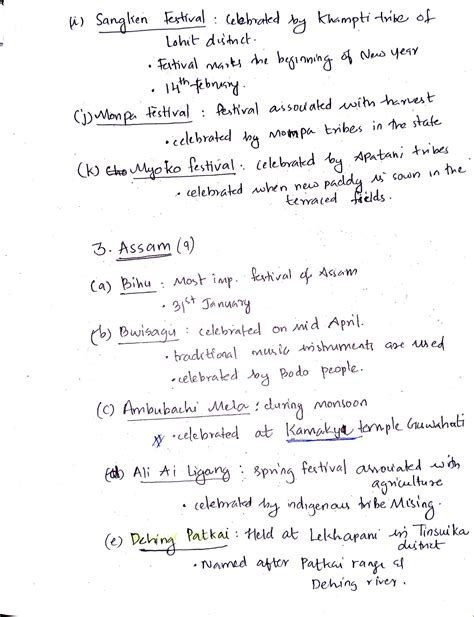 (i) Sangken Festival : Celebrated by Khampti tribe of
Lohit district.
• Festival marks the beginning of New Year
• 14th February.
(j) Monpa Festival : festival associated with harvest
• celebrated by Mompa tribes in the state
(k) Myoko festival : celebrated by Apatani tribes
• celebrated when new paddy is sown in the
terraced fields.
3. Assam (9)
(a) Bihu : Most imp. festival of Assam
• 31st January
(b) Bwisagu : celebrated on mid April.
• traditional music instruments are used
• celebrated by Bodo people.
(c) Ambubachi Mela : during monsoon
• celebrated at Kamakya temple Guwahati
(d) Ali Ai Ligang : spring festival associated with
agriculture
• celebrated by indigenous tribe Mising.
(e) Dehing Patkai : Held at Lekhapani in Tinsukia
district
• Named after Patkai range &
Dehing river.